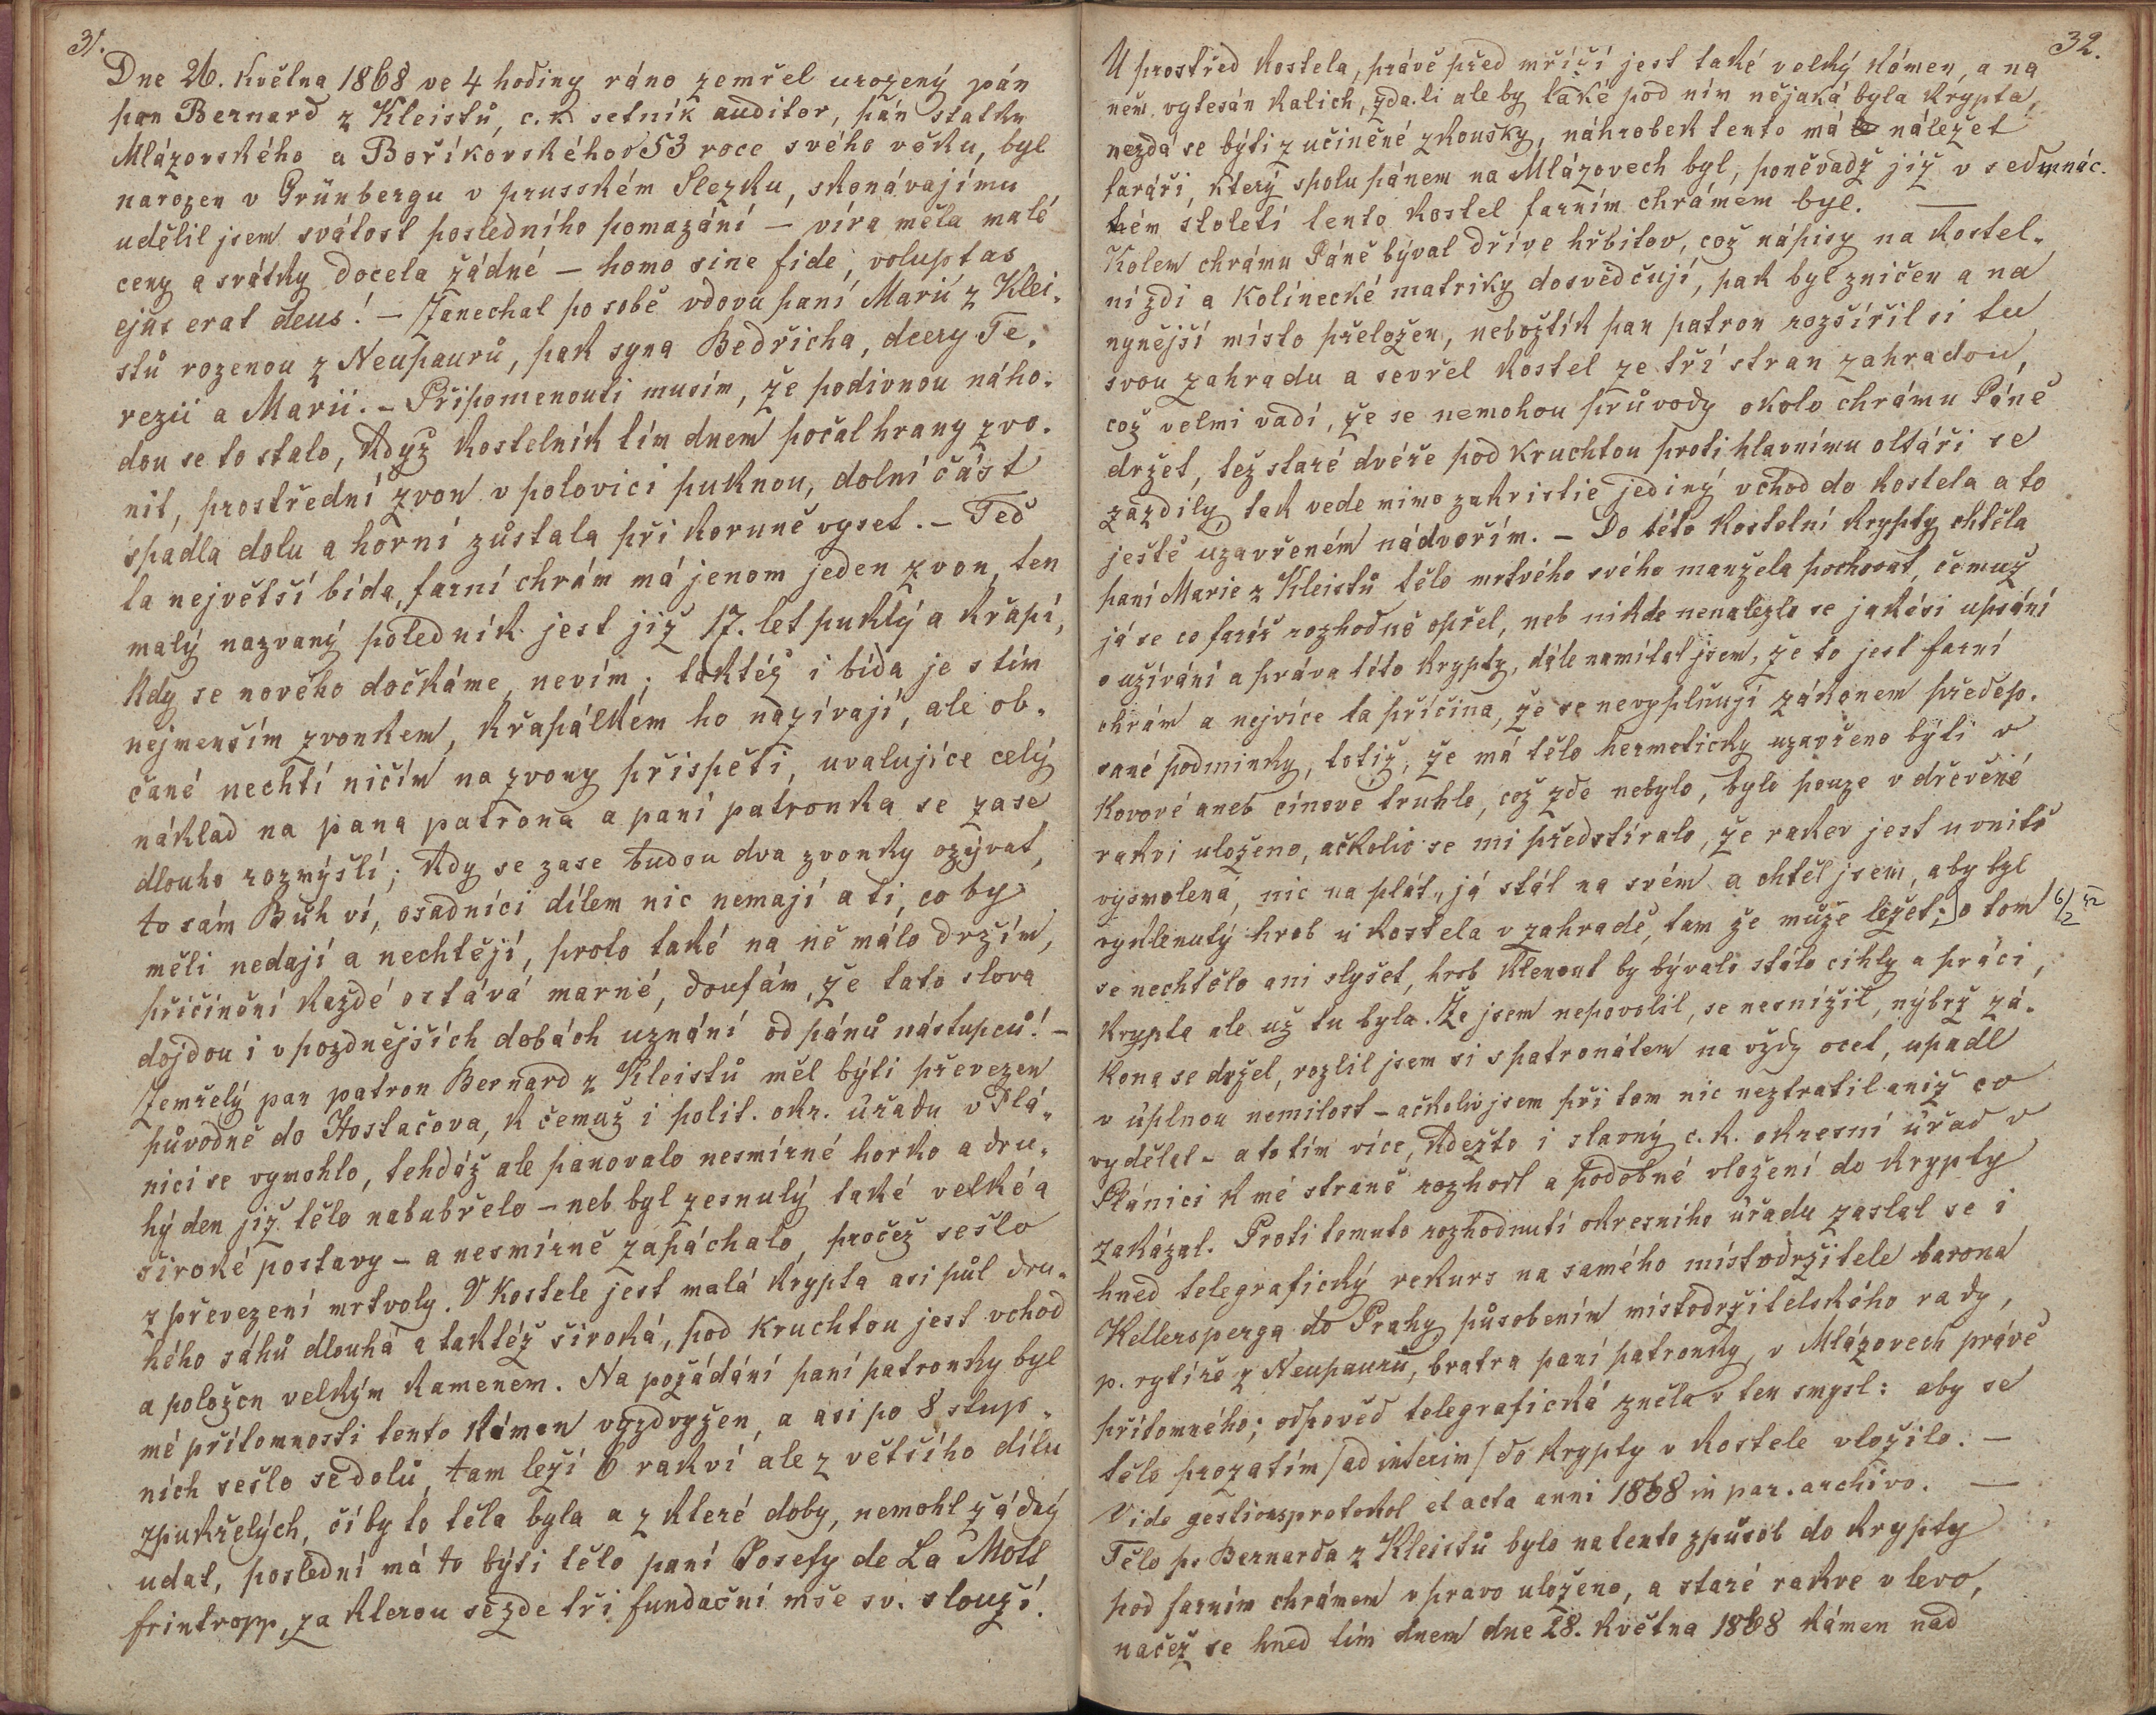 31.
Dne 26. Května 1868 ve 4 hodiny ráno zemřel urozený pán
pan Bernard z Kleistů, c. k. setník auditor, pán statku
Mlázovského a Boříkovského v 53 roce svého věku, byl
narozen v Grünbergu v prusském Slezku, skonávajímu
udělil jsem svátost posledního pomazání – víra měla malé
ceny a svátky docela žádné – homo sine fide, voluptas
ejus erat deus! – Zanechal po sobě vdovu paní Marii z Klei-
stů rozenou z Neupaurů, pak syna Bedřicha, dcery Te-
rezii a Marii. – Připomenouti musím, že podivnou náho-
dou se to stalo, když kostelník tím dnem počal hrany zvo-
nit, prostřední zvon v polovici puknou, dolní část
spadla dolu a horní zůstala při koruně vyset. – Teď
ta největší bída, farní chrám má jenom jeden zvon, ten
malý nazvaný poledník jest již 17. let puklý a křapí,
kdy se nového dočkáme, nevím; taktéž i bída je s tím
nejmenším zvonkem, křapálkem ho nazívají, ale ob-
čané nechtí ničím na zvony přispěti, uvalujíce celý
náklad na pana patrona a paní patronka se zase
dlouho rozmýšlí; kdy se zase budou dva zvonky ozývat,
to sám Bůh ví, osadníci dílem nic nemají a ti, co by
měli nedají a nechtějí, proto také na ně málo držím,
přičinění každé ostává marné, doufám, že tato slova
dojdou i v pozdnějších dobách uznání od pánů nástupců! –
Zemřelý pan patron Bernard z Kleistů měl býti převezen
původně do Hostačova, k čemuž i polit. okr. úřadu v Plá-
nici se vymohlo, tehdáž ale panovalo nesmírné horko a dru-
hý den již tělo nabubřelo – neb byl zesnulý také velké a
široké postavy – a nesmírně zapáchalo, pročež sešlo
z převezení mrtvoly. V kostele jest malá krypta asi půl dru-
hého sáhů dlouhá a taktéž široká, pod kruchtou jest vchod
a položen velkým kamenem. Na požádání paní patronky byl
mé přítomnosti tento kámen vyzdvyžen, a asi po 8 stup-
ních sešlo se dolů, tam leží 6 rakví ale z většího dílu
zpukřelých, čí by to těla byla a z které doby, nemohl žádný
udat, poslední má to býti tělo paní Josefy de La Mott
frintropp, za kterou se zde tři fundační mše sv. slouží.
32.
U prostřed kostela, právě před mříží jest také velký kámen, a na
něm vytesán kalich, zda-li ale by také pod ním nějaká byla krypta,
nezdá se býti z učiněné zkoušky, náhrobek tento má náležet
faráři, který spolu pánem na Mlázovech byl, poněvadž již v sedmnác-
tém století tento kostel farním chrámem byl. —
Kolem chrámu Páně býval dříve hřbitov, což nápisy na kostel-
ní zdi a Kolínecké matriky dosvědčují, pak byl zničen a na
nynější místo přeložen, nebožtík pan patron rozšířil si tu
svou zahradu a sevřel kostel ze tří stran zahradou,
což velmi vadí, že se nemohou průvody okolo chrámu Páně
držet, též staré dvéře pod kruchtou proti hlavnímu oltáři se
zazdily, tak vede mimo zakristie jediný vchod do kostela a to
ještě uzavřeném nádvořím. – Do této kostelní krypty chtěla
paní Marie z Kleistů tělo mrtvého svého manžela pochovat, čemuž
já se co farář rozhodně opřel, neb nikde nenalezlo se jakési upsání
o užívání a práva této krypty, dále namítal jsem, že to jest farní
chrám a nejvíce ta příčina, že se nevyplňují zákonem předep-
sané podmínky, totiž, že má tělo hermeticky uzavřeno býti v
kovové aneb cínové truhle, což zde nebylo, bylo pouze v dřevěné
rakvi uloženo, ačkoliv se mi předstíralo, že rakev jest u vnitř
vysmolená, nic na plát, já stál na svém a chtěl jsem, aby byl
vyklenutý hrob u kostela v zahradě, tam že může ležet; o tom
6/2 52
se nechtělo ani slyšet, hrob klenout by bývalo stálo cihly a práci,
krypta ale už tu byla. Že jsem nepovolil, se nesnížil, nýbrž zá-
kona se držel, rozlil jsem si s patronátem na vždy ocet, upadl
v úplnou nemilost – ačkoliv jsem při tom nic neztratil aniž co
vydělal – a to tím více, kdežto i slavný c. k. okresní úřad v
Plánici k mé straně rozhodl a podobné vložení do krypty
zakázal. Proti tomuto rozhodnutí okresního úřadu zaslal se i
hned telegrafický rekurs na samého místodržitele barona
Kellersperga do Prahy působením místodržitelského rady,
p. rytíře z Neupaurů, bratra paní patronky, v Mlázovech právě
přítomného; odpověd telegrafická zněla v ten smysl: aby se
tělo prozatím /ad interim/ do krypty v kostele vložilo. —
Vide gestionsprotokol et acta anni 1868 in par. archivo. —
Tělo p. Bernarda z Kleistů bylo na tento způsob do krypty
pod farním chrámem v pravo uloženo, a staré rakve v levo,
načež se hned tím dnem dne 28. Května 1868 kámen nad